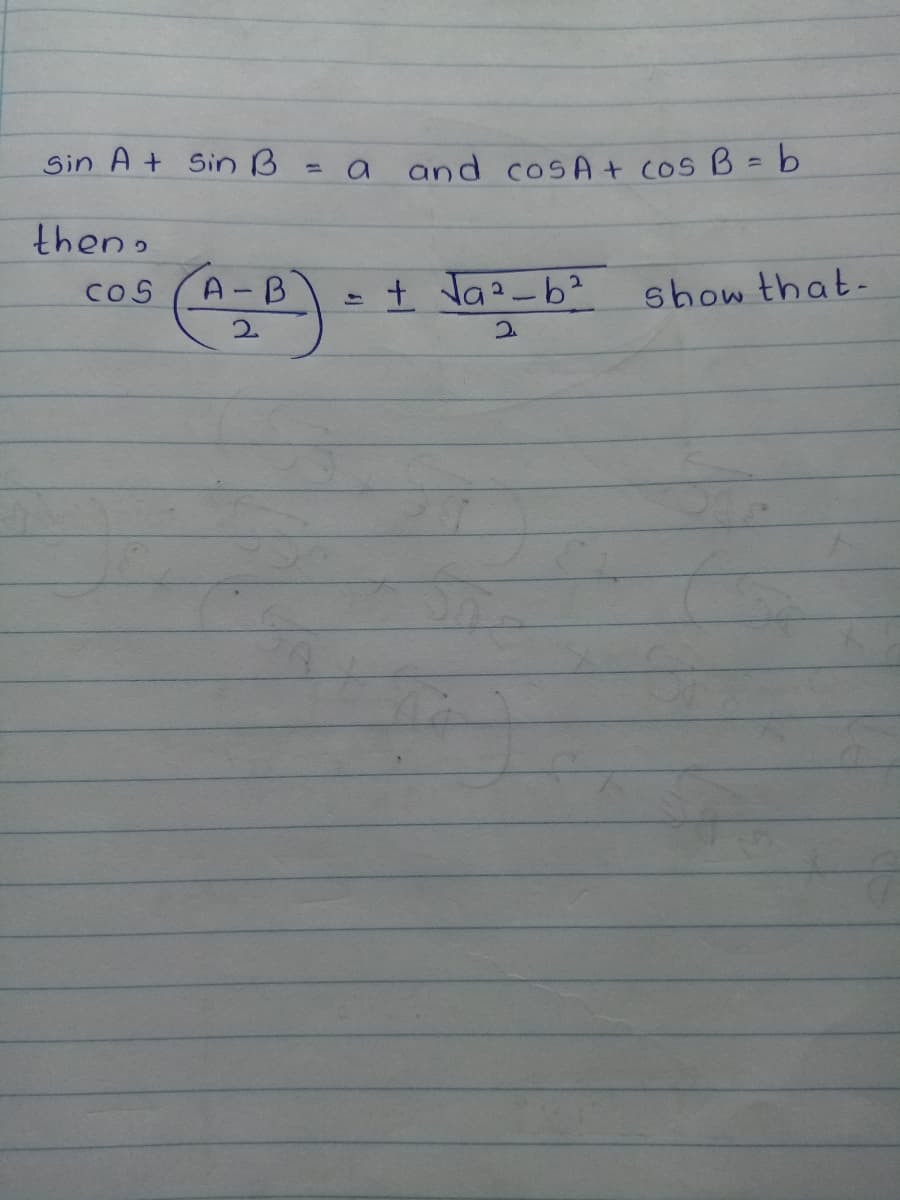 sin A + sin B = a and cosA + cos B = b
then,
cos (A-B/2) = ± √a²-b²/2 show that.